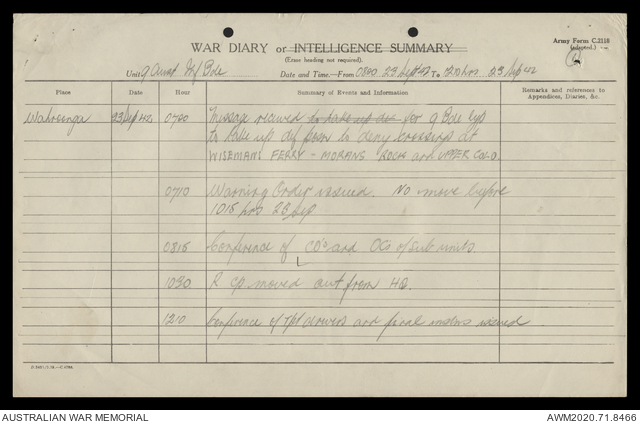 WAR DIARY or INTELLIGENCE SUMMARY
(Erase heading not required).
Army Form C.2118
(adapted.)
Unit 9 Aust Inf Bde
Date and Time—From 0700 23 Sept 42 To 1210 hrs 23 Sep 42
Place Date Hour Summary of Events and Information Remarks and references to Appendices, Diaries, &c.
Wahroonga 23 Sep 42 0700 Message received to take up for 9 Bde Gp
to take up def posn to deny crossings at
WISEMANS FERRY - MORANS ROCK and UPPER COLO.
0710 Warning Order issued. No move before
1015 hrs 23 Sep
0815 Conference of CO's and OCs of sub units.
1030 R Gp moved out from HQ.
1210 Conference of and final issued
AUSTRALIAN WAR MEMORIAL
AWM2020.71.8466